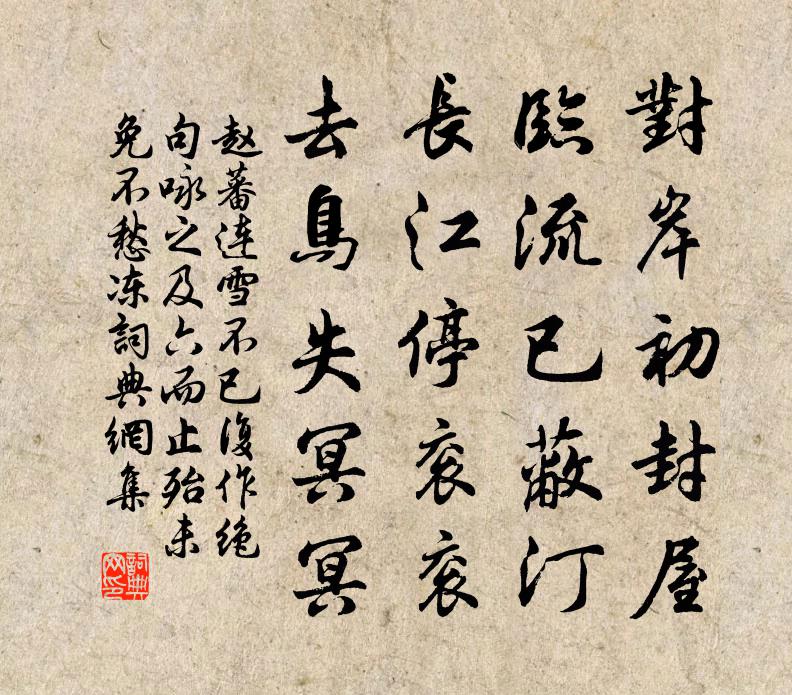 對岸初封屋
臨流已蔽汀
長江停衮衮
去鳥失冥冥
赵蕃连雪不已復作绝
句咏之及六而止殆未
免不愁冻詞典網集
詞典
网印